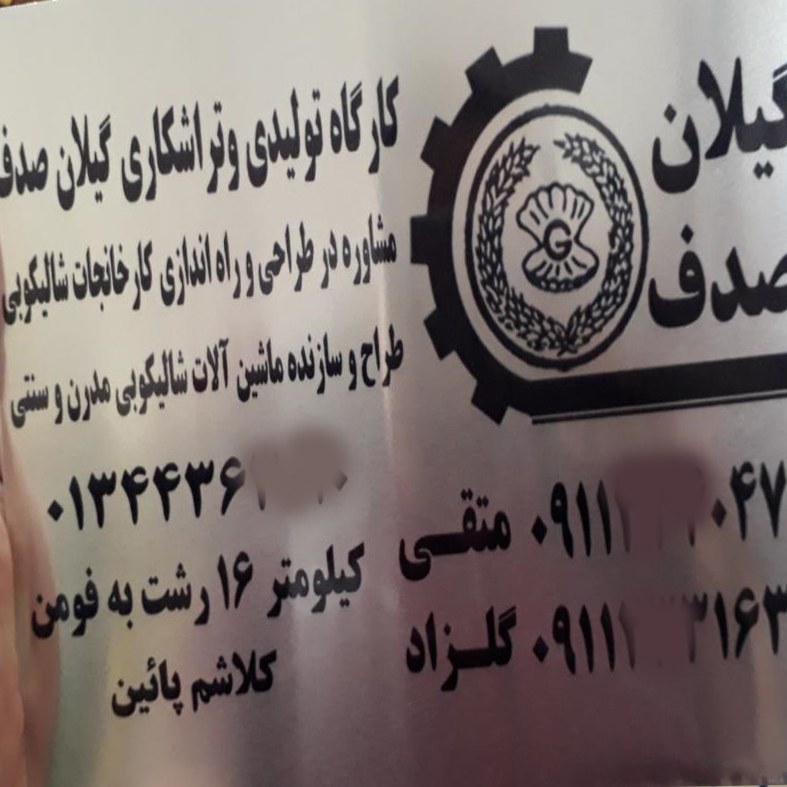 گیلان
صدف
G
کارگاه تولیدی وتراشکاری گیلان صدف
مشاوره در طراحی و راه اندازی کارخانجات شالیکوبی
طراح و سازنده ماشین آلات شالیکوبی مدرن و سنتی
۰۹۱۱ ۰۴۷ متقی
۰۹۱۱ ۳۱۶۳ گلزاد
۰۱۳۴۴۳۶
کیلومتر ۱۶ رشت به فومن
کلاشم پائین